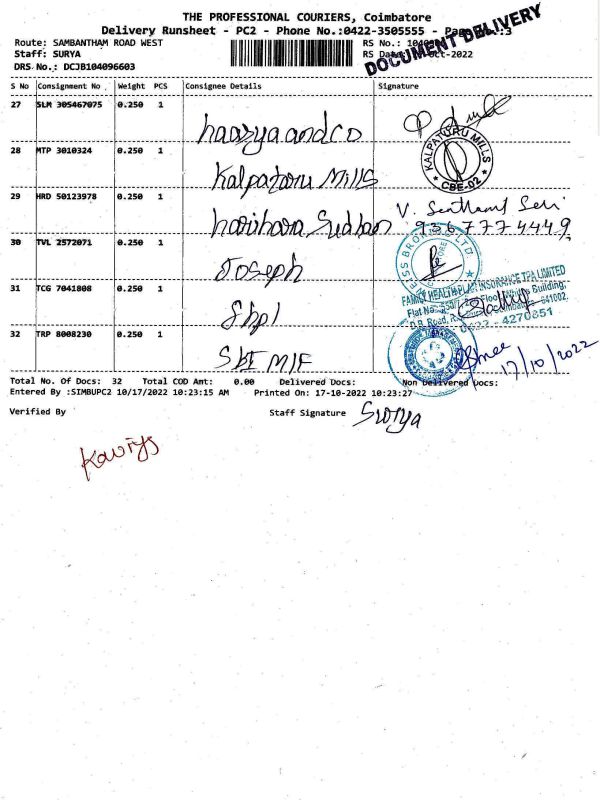 THE PROFESSIONAL COURIERS, Coimbatore
Delivery Runsheet - PC2 - Phone No.:0422-3505555 - Page :3
DOCUMENT DELIVERY
Route: SAMBANTHAM ROAD WEST
RS No.:
Staff: SURYA
RS Date: -Oct-2022
DRS No.: DCJB104096603
S No Consignment No Weight PCS Consignee Details Signature
27 SLM 305467075 0.250 1 haazyaandco
28 MTP 3010324 0.250 1 Kalpataru Mills
KALPATURU MILLS
* CBE-02 *
29 HRD 50123978 0.250 1 harihara Sudhan
9367774449
30 TVL 2572071 0.250 1 Joseph
31 TCG 7041808 0.250 1 Shpl
FAMILY HEALTH PLAN INSURANCE TPA LIMITED
Building,
641002.
0422 - 4270851
32 TRP 8008230 0.250 1 SBI MIF
17/10/2022
Total No. Of Docs: 32 Total COD Amt: 0.00 Delivered Docs: Non Delivered Docs:
Entered By :SIMBUPC2 10/17/2022 10:23:15 AM Printed On: 17-10-2022 10:23:27
Verified By Staff Signature Surya